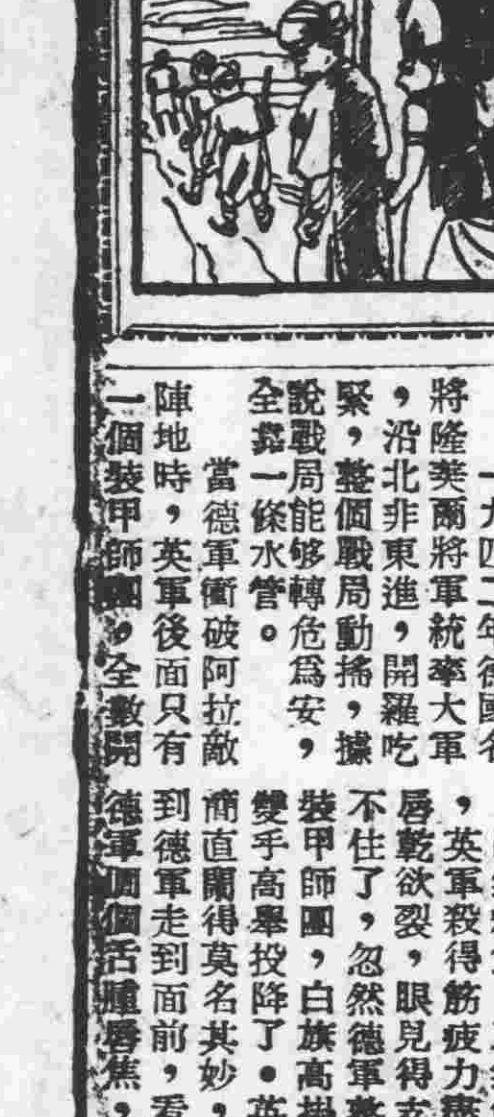 一九四二年德國名
將隆美爾將軍統率大軍
，沿北非東進，開羅吃
緊，整個戰局動搖，據
說戰局能够轉危爲安，
全靠一條水管。
當德軍衝破阿拉敵
陣地時，英軍後面只有
一個裝甲師團，全數開
，英軍殺得筋疲力
唇乾欲裂，眼見得
不住了，忽然德軍
裝甲師團，白旗高掛
雙手高舉投降了。英
商直鬧得莫名其妙，
到德軍走到面前，看
德軍個個舌腫唇焦，